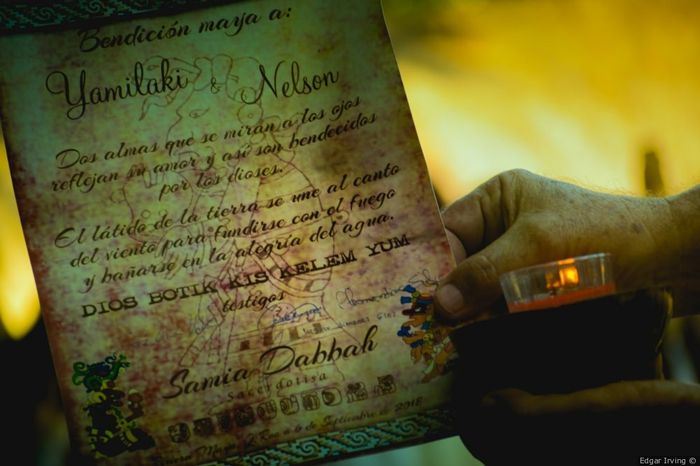 Bendición maya a:
Yamilaki & Nelson
Dos almas que se miran a los ojos
reflejan su amor y así son bendecidos
por los dioses.
El látido de la tierra se une al canto
del viento para fundirse con el fuego
y bañarse en la alegría del agua.
DIOS BOTIK KIS KELEM YUM
testigos
Samia Dabbah
Sacerdotisa
Maya 2 Roo a 6 de Septiembre de 2018
Edgar Irving ©